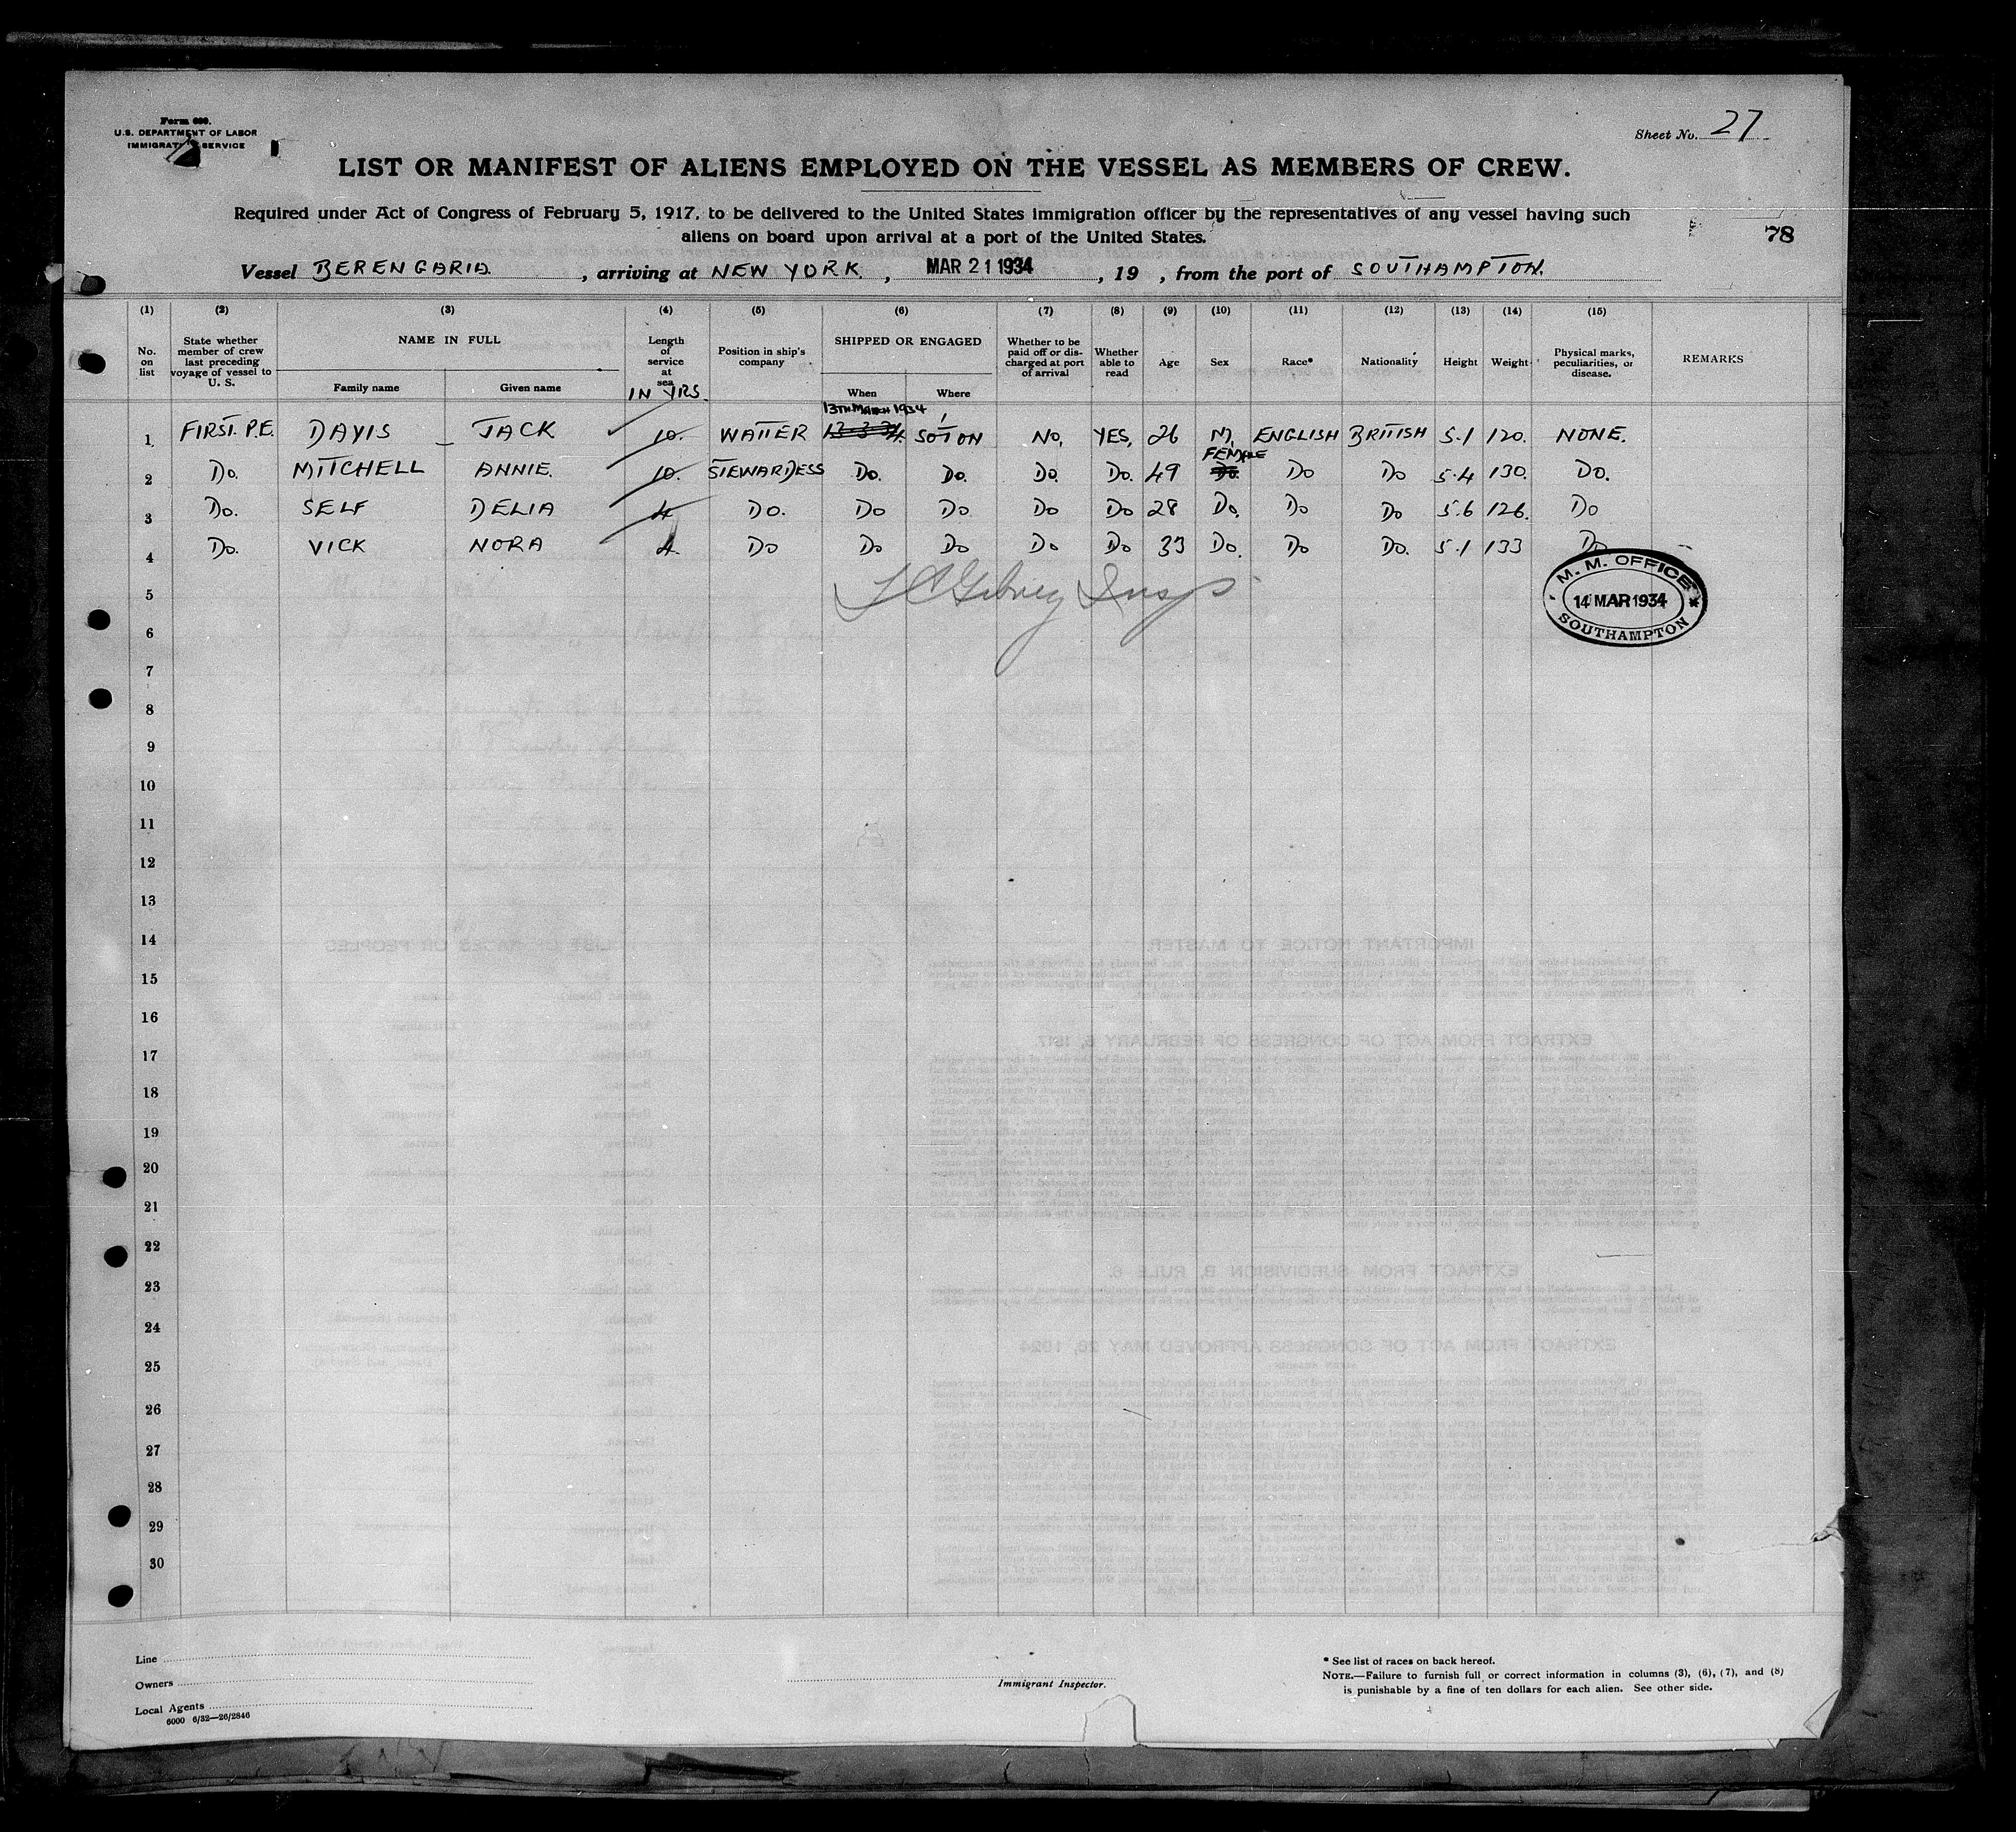 Form 680.
U.S. DEPARTMENT OF LABOR
IMMIGRATION SERVICE
Sheet No. 27
LIST OR MANIFEST OF ALIENS EMPLOYED ON THE VESSEL AS MEMBERS OF CREW.
Required under Act of Congress of February 5, 1917, to be delivered to the United States immigration officer by the representatives of any vessel having such
aliens on board upon arrival at a port of the United States.
78
Vessel BERENGARIA , arriving at NEW YORK. , MAR 21 1934 , 19 , from the port of SOUTHAMPTON.
(1) (2) (3) (4) (5) (6) (7) (8) (9) (10) (11) (12) (13) (14) (15)
No. on list State whether member of crew last preceding voyage of vessel to U. S. NAME IN FULL Family name Given name Length of service at sea IN YRS. Position in ship's company SHIPPED OR ENGAGED When Where Whether to be paid off or discharged at port of arrival Whether able to read Age Sex Race* Nationality Height Weight Physical marks, peculiarities, or disease. REMARKS
13TH MARCH 1934
1 FIRST. P.E. DAVIS – JACK 10. WAITER SOTON NO, YES, 26 M, ENGLISH BRITISH 5.1 120. NONE.
FEMALE
2 Do. MITCHELL ANNIE. 10. STEWARDESS Do. Do. Do. Do. 49 Do. Do Do 5.4 130. Do.
3 Do. SELF DELIA 4 Do. Do Do Do Do 28 Do. Do Do 5.6 126. Do
4 Do. VICK NORA 4. Do Do Do Do Do 33 Do. Do Do. 5.1 133 Do
M. M. OFFICE
14 MAR 1934
SOUTHAMPTON
5
6
7
8
9
10
11
12
13
14
15
16
17
18
19
20
21
22
23
24
25
26
27
28
29
30
Line
Owners
Local Agents
6000 6/32—26/2846
Immigrant Inspector.
* See list of races on back hereof.
NOTE.—Failure to furnish full or correct information in columns (3), (6), (7), and (8)
is punishable by a fine of ten dollars for each alien. See other side.